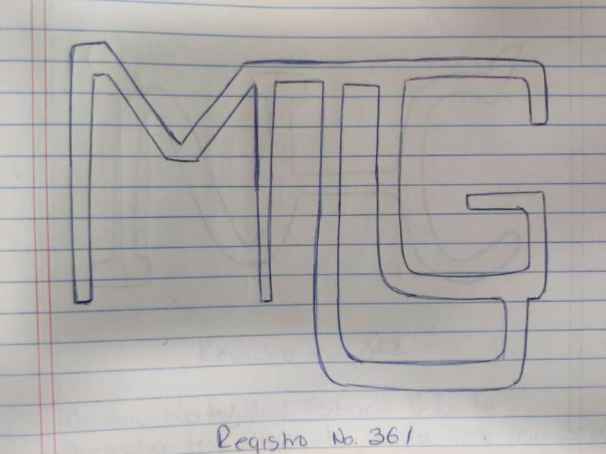 MLG
Registro No. 361